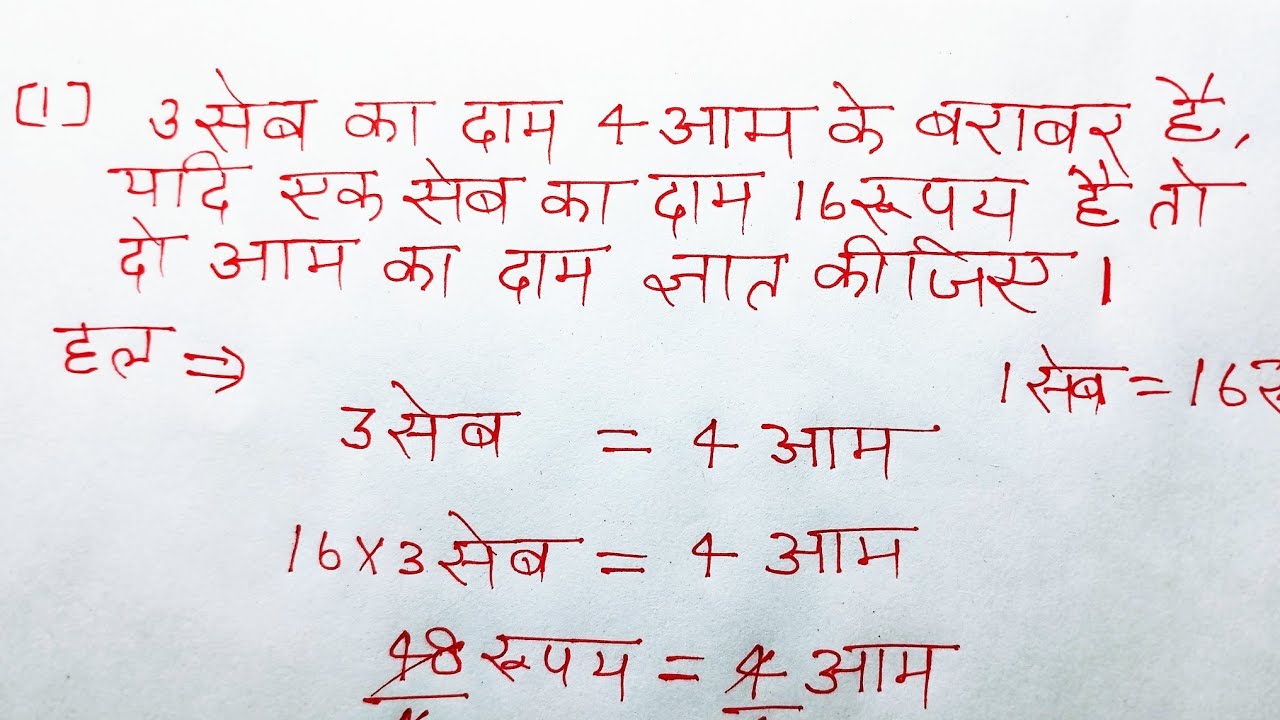 [1] 3 सेब का दाम 4 आम के बराबर है,
यदि एक सेब का दाम 16 रूपय है तो
दो आम का दाम ज्ञात कीजिए।
हल ⇒
1 सेब = 16रू
3 सेब = 4 आम
16×3 सेब = 4 आम
48 रूपय = 4 आम